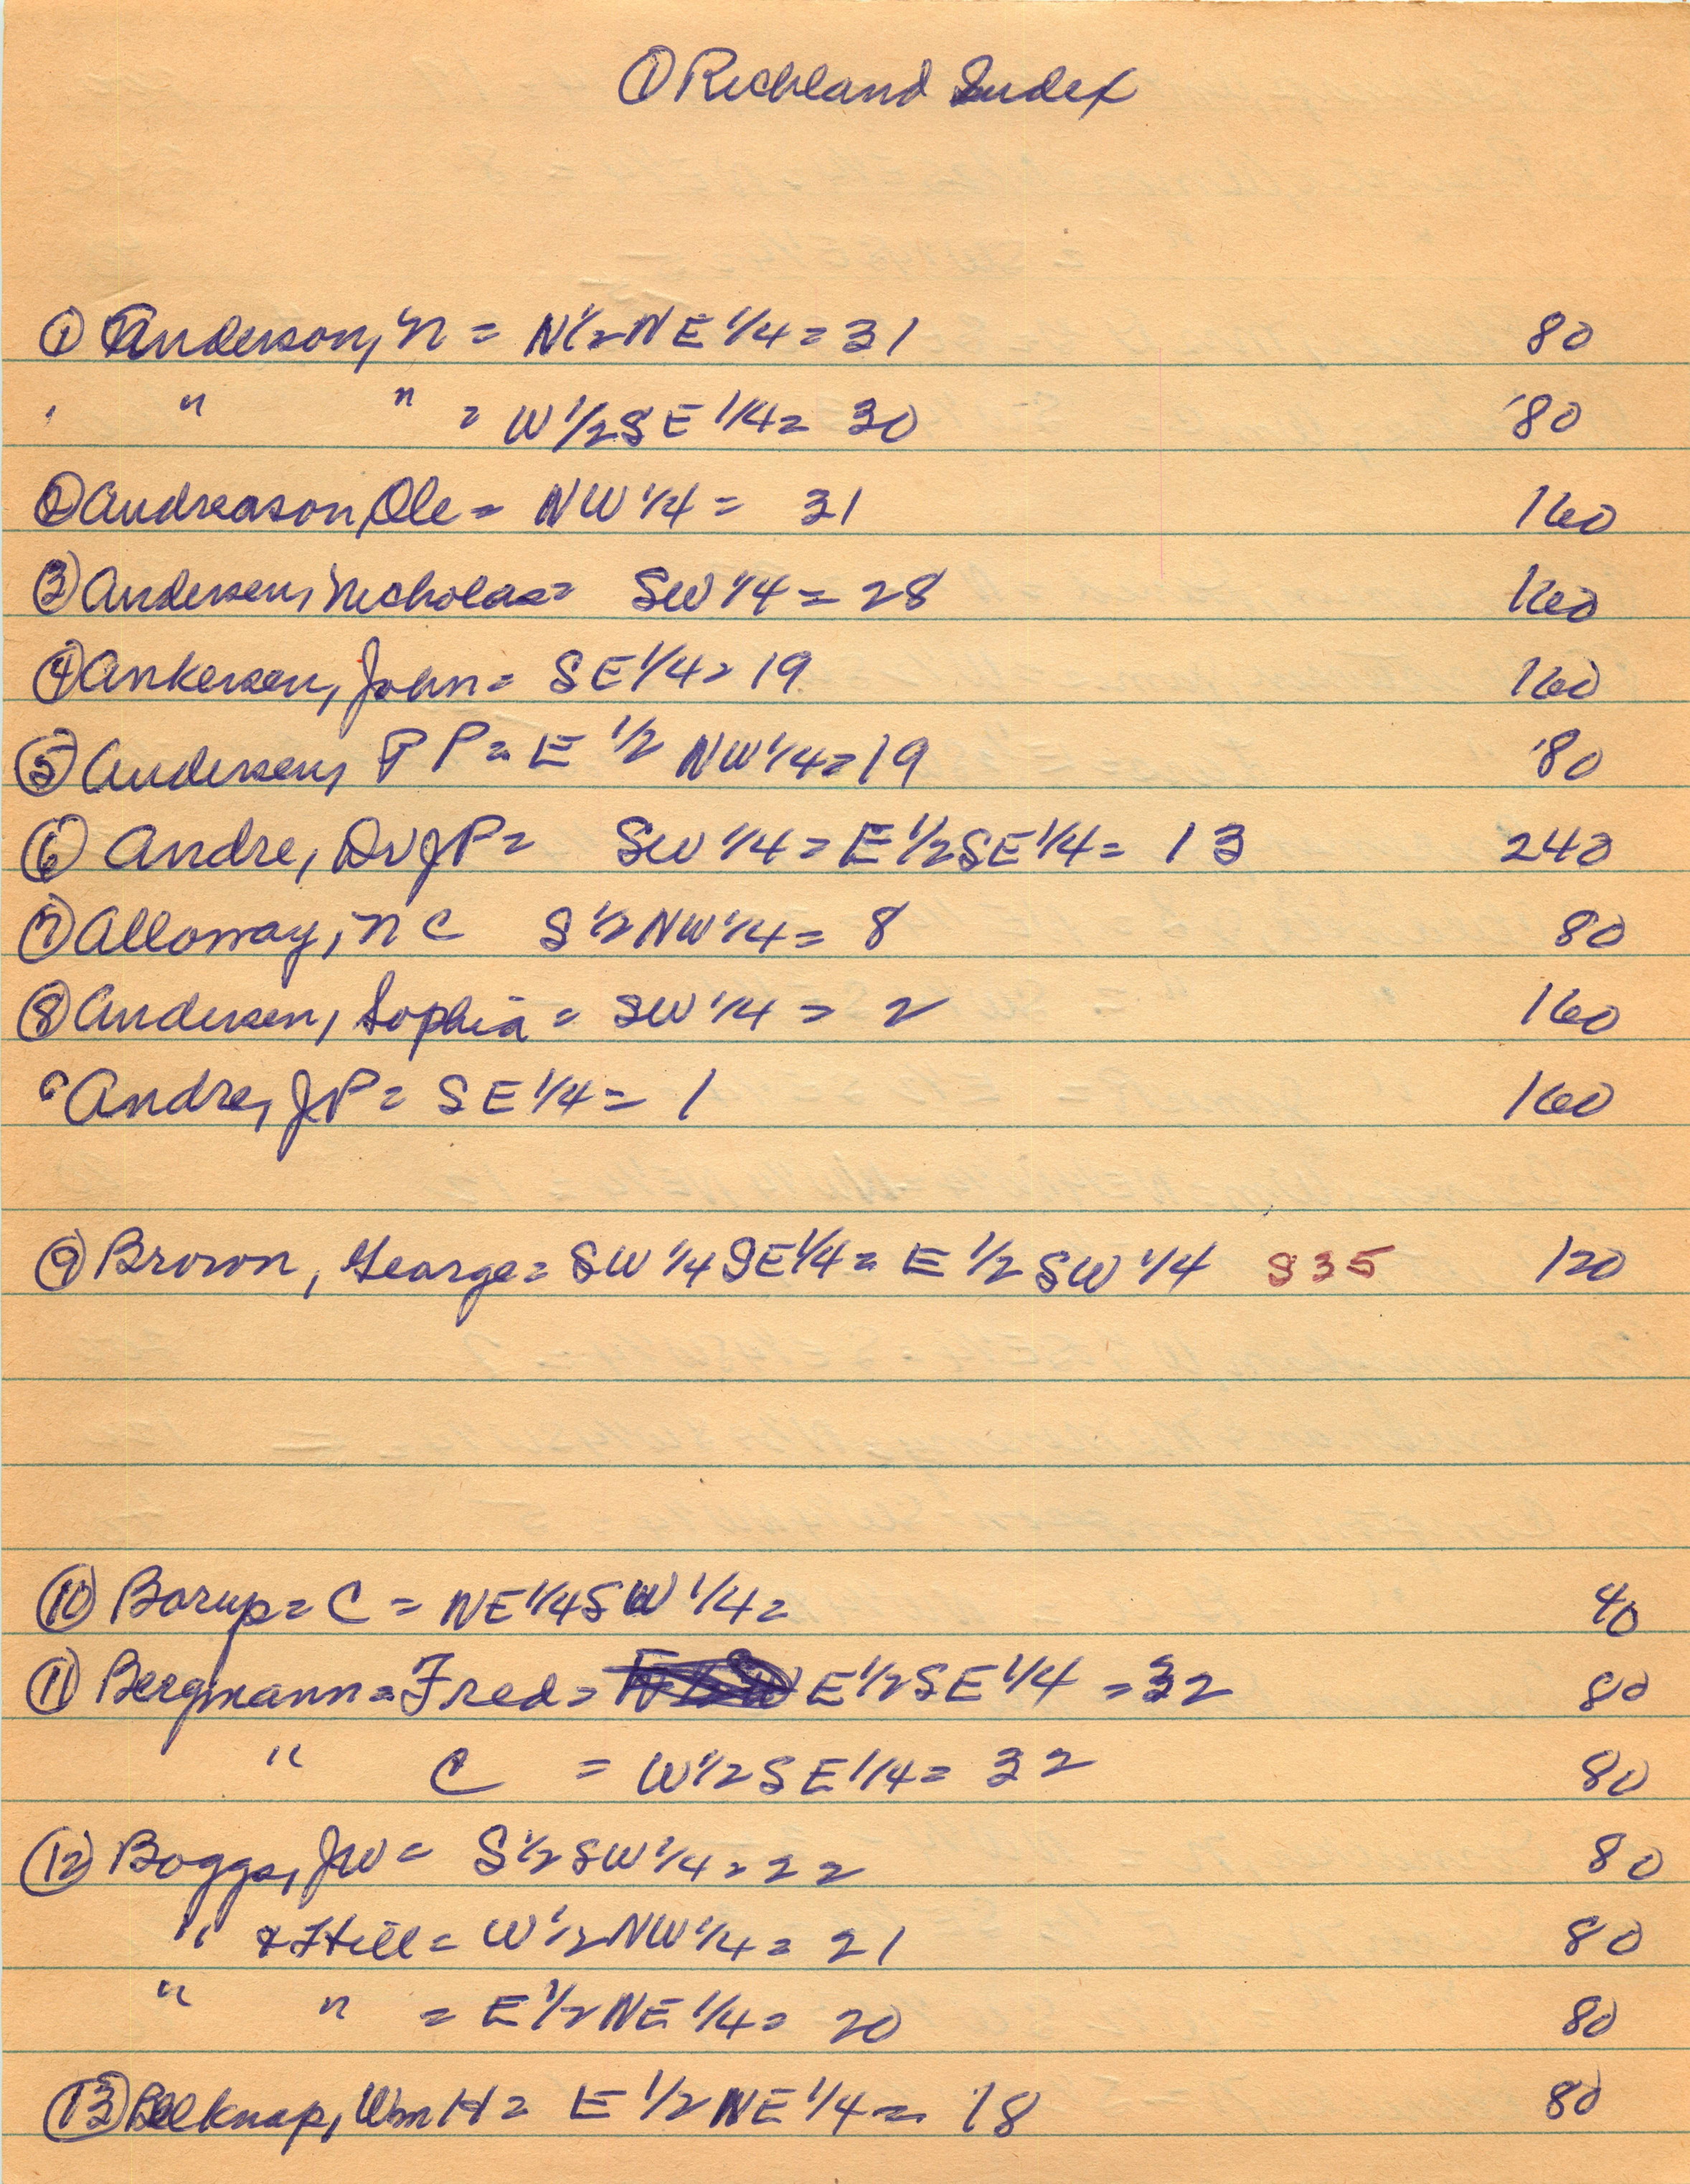 ① Richland Index
① Anderson, N = N 1/2 NE 1/4 = 31 80
" " = W 1/2 SE 1/4 = 30 80
② Andreason, Ole = NW 1/4 = 31 160
③ Andersen, Nicholas = SW 1/4 = 28 160
④ Ankersen, John = SE 1/4 = 19 160
⑤ Andersen, P P = E 1/2 NW 1/4 = 19 80
⑥ Andre, Dr J P = SW 1/4 = E 1/2 SE 1/4 = 13 240
⑦ Alloway, N C S 1/2 NW 1/4 = 8 80
⑧ Andersen, Sophia = SW 1/4 = 2 160
Andre, J P = SE 1/4 = 1 160
⑨ Brown, George = SW 1/4 SE 1/4 = E 1/2 SW 1/4 S 35 120
⑩ Borup = C = NE 1/4 SW 1/4 = 40
⑪ Bergmann = Fred = E 1/2 SE 1/4 = 32 80
" C = W 1/2 SE 1/4 = 32 80
⑫ Boggs, J W = S 1/2 SW 1/4 = 22 80
" & Hill = W 1/2 NW 1/4 = 21 80
" " = E 1/2 NE 1/4 = 20 80
⑬ Belknap, Wm H = E 1/2 NE 1/4 = 18 80